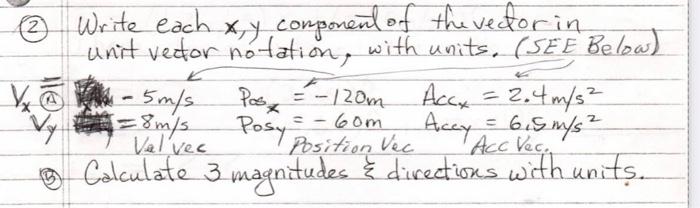 ② Write each x,y component of the vector in
unit vector notation, with units. (SEE Below)
Vx = Ⓐ - 5m/s Posx = -120m Accx = 2.4 m/s²
Vy = 8m/s Posy = - 60m Accy = 6.5 m/s²
Vel Vec Position Vec Acc Vec.
Ⓑ Calculate 3 magnitudes & directions with units.